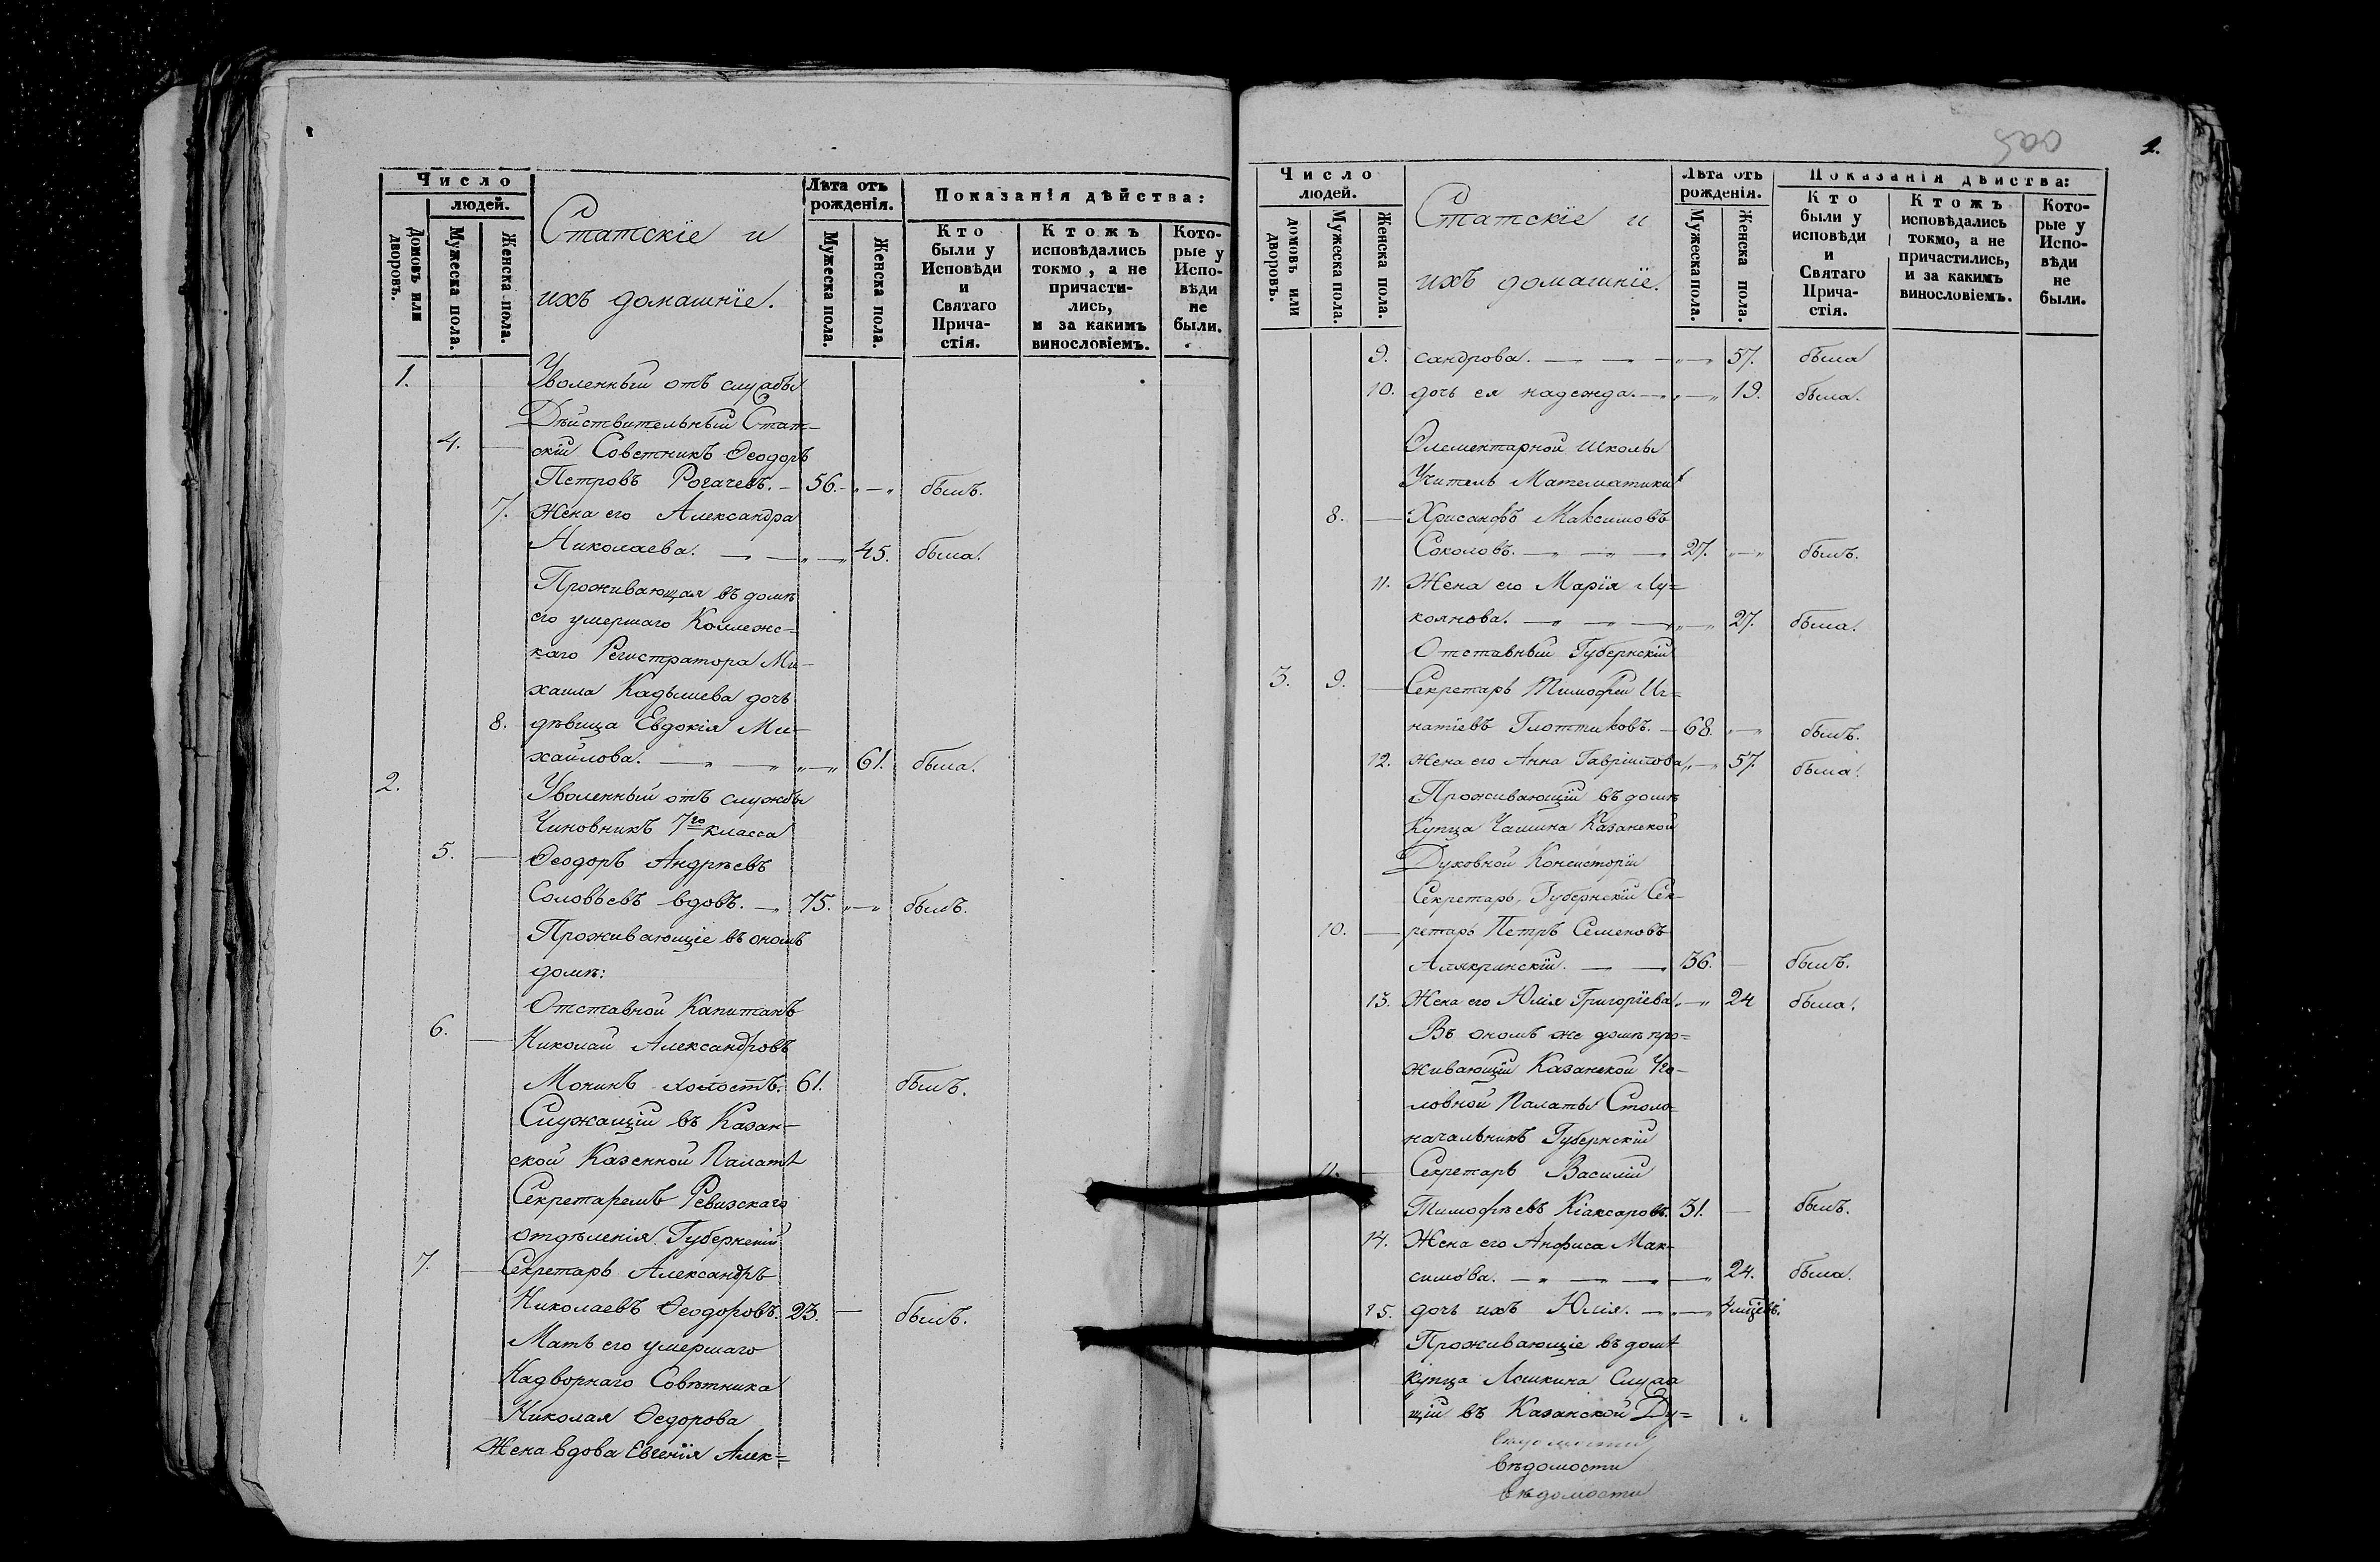 Число
людей.
Домовъ или дворовъ.
Мужеска пола.
Женска пола.
Статскіе и
ихъ домашніе.
Лѣта отъ
рожденія.
Мужеска пола.
Женска пола.
Показанія дѣйства:
Кто
были у
Исповѣди
и
Святаго
Прича-
стія.
Ктожъ
исповѣдались
токмо, а не
причасти-
лись,
и за какимъ
винословіемъ.
Кото-
рые у
Испо-
вѣди
не
были.
1. Уволенный отъ службы
Дѣйствительный Стат-
4. скій Советникъ Ѳеодоръ
Петровъ Рогачевъ. 56. былъ.
7. Жена его Александра
Николаева. 45. была.
Проживающая въ домѣ
его умершаго Коллежс-
каго Регистратора Ми-
хаила Кадышева дочь
8. дѣвица Евдокія Ми-
хайлова. 61. была.
2. Уволенный отъ службы
Чиновникъ 7го класса
5. Ѳеодоръ Андрѣевъ
Соловьевъ вдовъ. 75. былъ.
Проживающіе въ ономъ
домѣ:
Отставной Капитанъ
6. Николай Александровъ
Монинъ холостъ. 61. былъ.
Служащій въ Казан-
ской Казенной Палатѣ
Секретаремъ Ревизскаго
отдѣленія Губернскій
7. Секретарь Александръ
Николаевъ Ѳеодоровъ. 23. былъ.
Мать его умершаго
Надворнаго Совѣтника
Николая Ѳедорова
Жена вдова Евгенія Алек=
1.
Число
людей.
домовъ или дворовъ.
Мужеска пола.
Женска пола.
Статскіе и
ихъ домашніе.
Лѣта отъ
рожденія.
Мужеска пола.
Женска пола.
Показанія дѣйства:
Кто
были у
исповѣди
и
Святаго
Прича-
стія.
Ктожъ
исповѣдались
токмо, а не
причастились,
и за какимъ
винословіемъ.
Кото-
рые у
Испо-
вѣди
не
были.
9. сандрова. 57. была
10. дочь ея надежда. 19. была.
Элементарной школы
Учитель Математики
8. Хрисанфъ Максимовъ
Соколовъ. 27. былъ.
11. Жена его Марія Лу=
коянова. 27. была.
Отставный Губернскій
3. 9. Секретарь Тимофей Иг=
натіевъ Глоттиковъ. 68. былъ.
12. Жена его Анна Гавріилова 57. была.
Проживающій въ домѣ
Купца Чашина Казанской
Духовной Консисторіи
Секретарь, Губернскій Сек-
10. ретарь Петръ Семеновъ
Алякринскій. 36. былъ.
13. Жена его Юлія Григоріева. 24 была.
Въ ономъ же домѣ про=
живающій Казанской Уго-
ловной Палаты Столо=
начальникъ Губернскій
11. Секретарь Василій
Тимофѣевъ Кіаксаровъ. 31. былъ.
14. Жена его Анфиса Мак-
симова. 24. была.
15. дочь ихъ Юлія.
Проживающіе въ домѣ
купца Лошкина Служа
щій въ Казанской Ду=
вѣдомости
вѣдомости